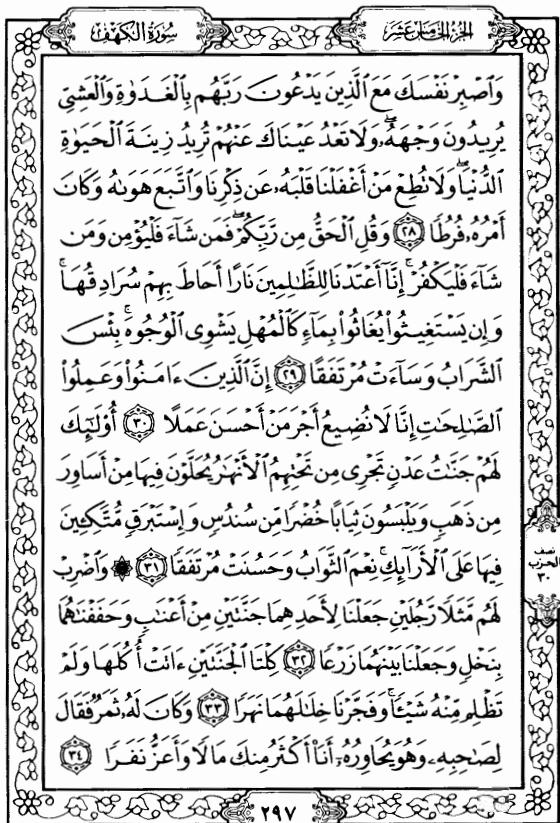 الجزء الخامس عشر
سورة الكهف
وَاصْبِرْ نَفْسَكَ مَعَ الَّذِينَ يَدْعُونَ رَبَّهُم بِالْغَدَوٰةِ وَالْعَشِيِّ
يُرِيدُونَ وَجْهَهُۥ ۖ وَلَا تَعْدُ عَيْنَاكَ عَنْهُمْ تُرِيدُ زِينَةَ الْحَيَوٰةِ
الدُّنْيَا ۖ وَلَا تُطِعْ مَنْ أَغْفَلْنَا قَلْبَهُۥ عَن ذِكْرِنَا وَاتَّبَعَ هَوَىٰهُ وَكَانَ
أَمْرُهُۥ فُرُطًا ٢٨ وَقُلِ الْحَقُّ مِن رَّبِّكُمْ ۖ فَمَن شَآءَ فَلْيُؤْمِن وَمَن
شَآءَ فَلْيَكْفُرْ ۚ إِنَّآ أَعْتَدْنَا لِلظَّٰلِمِينَ نَارًا أَحَاطَ بِهِمْ سُرَادِقُهَا ۚ
وَإِن يَسْتَغِيثُوا۟ يُغَاثُوا۟ بِمَآءٍ كَالْمُهْلِ يَشْوِى الْوُجُوهَ ۚ بِئْسَ
الشَّرَابُ وَسَآءَتْ مُرْتَفَقًا ٢٩ إِنَّ الَّذِينَ ءَامَنُوا۟ وَعَمِلُوا۟
الصَّٰلِحَٰتِ إِنَّا لَا نُضِيعُ أَجْرَ مَنْ أَحْسَنَ عَمَلًا ٣٠ أُو۟لَٰٓئِكَ
لَهُمْ جَنَّٰتُ عَدْنٍ تَجْرِى مِن تَحْتِهِمُ الْأَنْهَٰرُ يُحَلَّوْنَ فِيهَا مِنْ أَسَاوِرَ
مِن ذَهَبٍ وَيَلْبَسُونَ ثِيَابًا خُضْرًا مِّن سُندُسٍ وَإِسْتَبْرَقٍ مُّتَّكِـِٔينَ
فِيهَا عَلَى الْأَرَآئِكِ ۚ نِعْمَ الثَّوَابُ وَحَسُنَتْ مُرْتَفَقًا ٣١ ۞ وَاضْرِبْ
لَهُم مَّثَلًا رَّجُلَيْنِ جَعَلْنَا لِأَحَدِهِمَا جَنَّتَيْنِ مِنْ أَعْنَٰبٍ وَحَفَفْنَٰهُمَا
بِنَخْلٍ وَجَعَلْنَا بَيْنَهُمَا زَرْعًا ٣٢ كِلْتَا الْجَنَّتَيْنِ ءَاتَتْ أُكُلَهَا وَلَمْ
تَظْلِم مِّنْهُ شَيْـًٔا ۚ وَفَجَّرْنَا خِلَٰلَهُمَا نَهَرًا ٣٣ وَكَانَ لَهُۥ ثَمَرٌ فَقَالَ
لِصَٰحِبِهِۦ وَهُوَ يُحَاوِرُهُۥٓ أَنَا۠ أَكْثَرُ مِنكَ مَالًا وَأَعَزُّ نَفَرًا ٣٤
نصف
الحزب
٣٠
٢٩٧